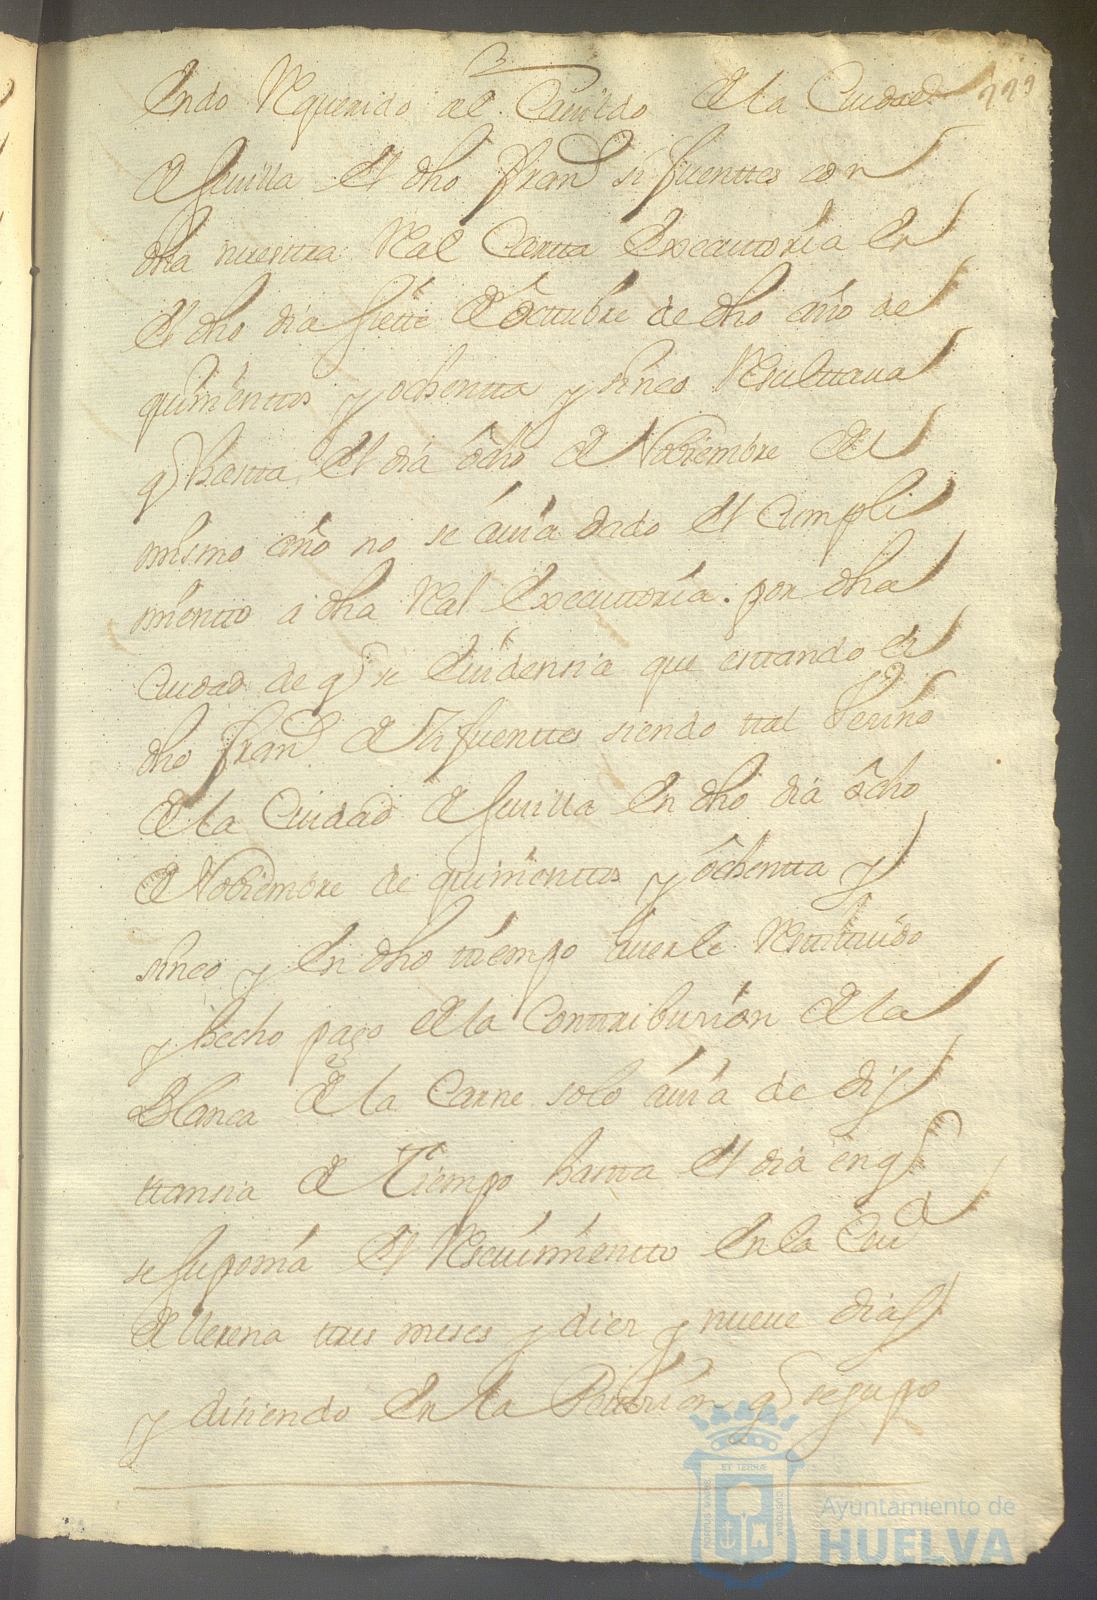 endo Requerido al Cavildo de la Ciudad
de Sevilla el dho Fran.co Sifuenttes con
dha nuestra Real Cartta Executtoria en
el dho dia siette de Octtubre de dho año de
quinienttos y ochentta y sinco Resulttava
q.e hastta el dia ôcho de Noviembre del
mismo año no se âvia dado el Cumpli
mientto a dha Real Executtoria. por dha
Ciudad de q.e se Evidensia que esttando el
dho Fran.co de Sifuenttes siendo ttal Vezino
de la Ciudad de Sevilla en dho dia ôcho
de Noviembre de quinienttos y ôchentta y
sinco y en dho tiempo averle Restituido
y hecho pago de la Conttribusion de la
Blanca de la Carne solo âvia de dis
ttansia de Tiempo hastta el dia en q.e
se suponia el Resivimientto en la Ciu.d
de Llerena ttres meses y diez y nueve dias
y disiendo en la Petision q.e se supo
Ayuntamiento de
HUELVA